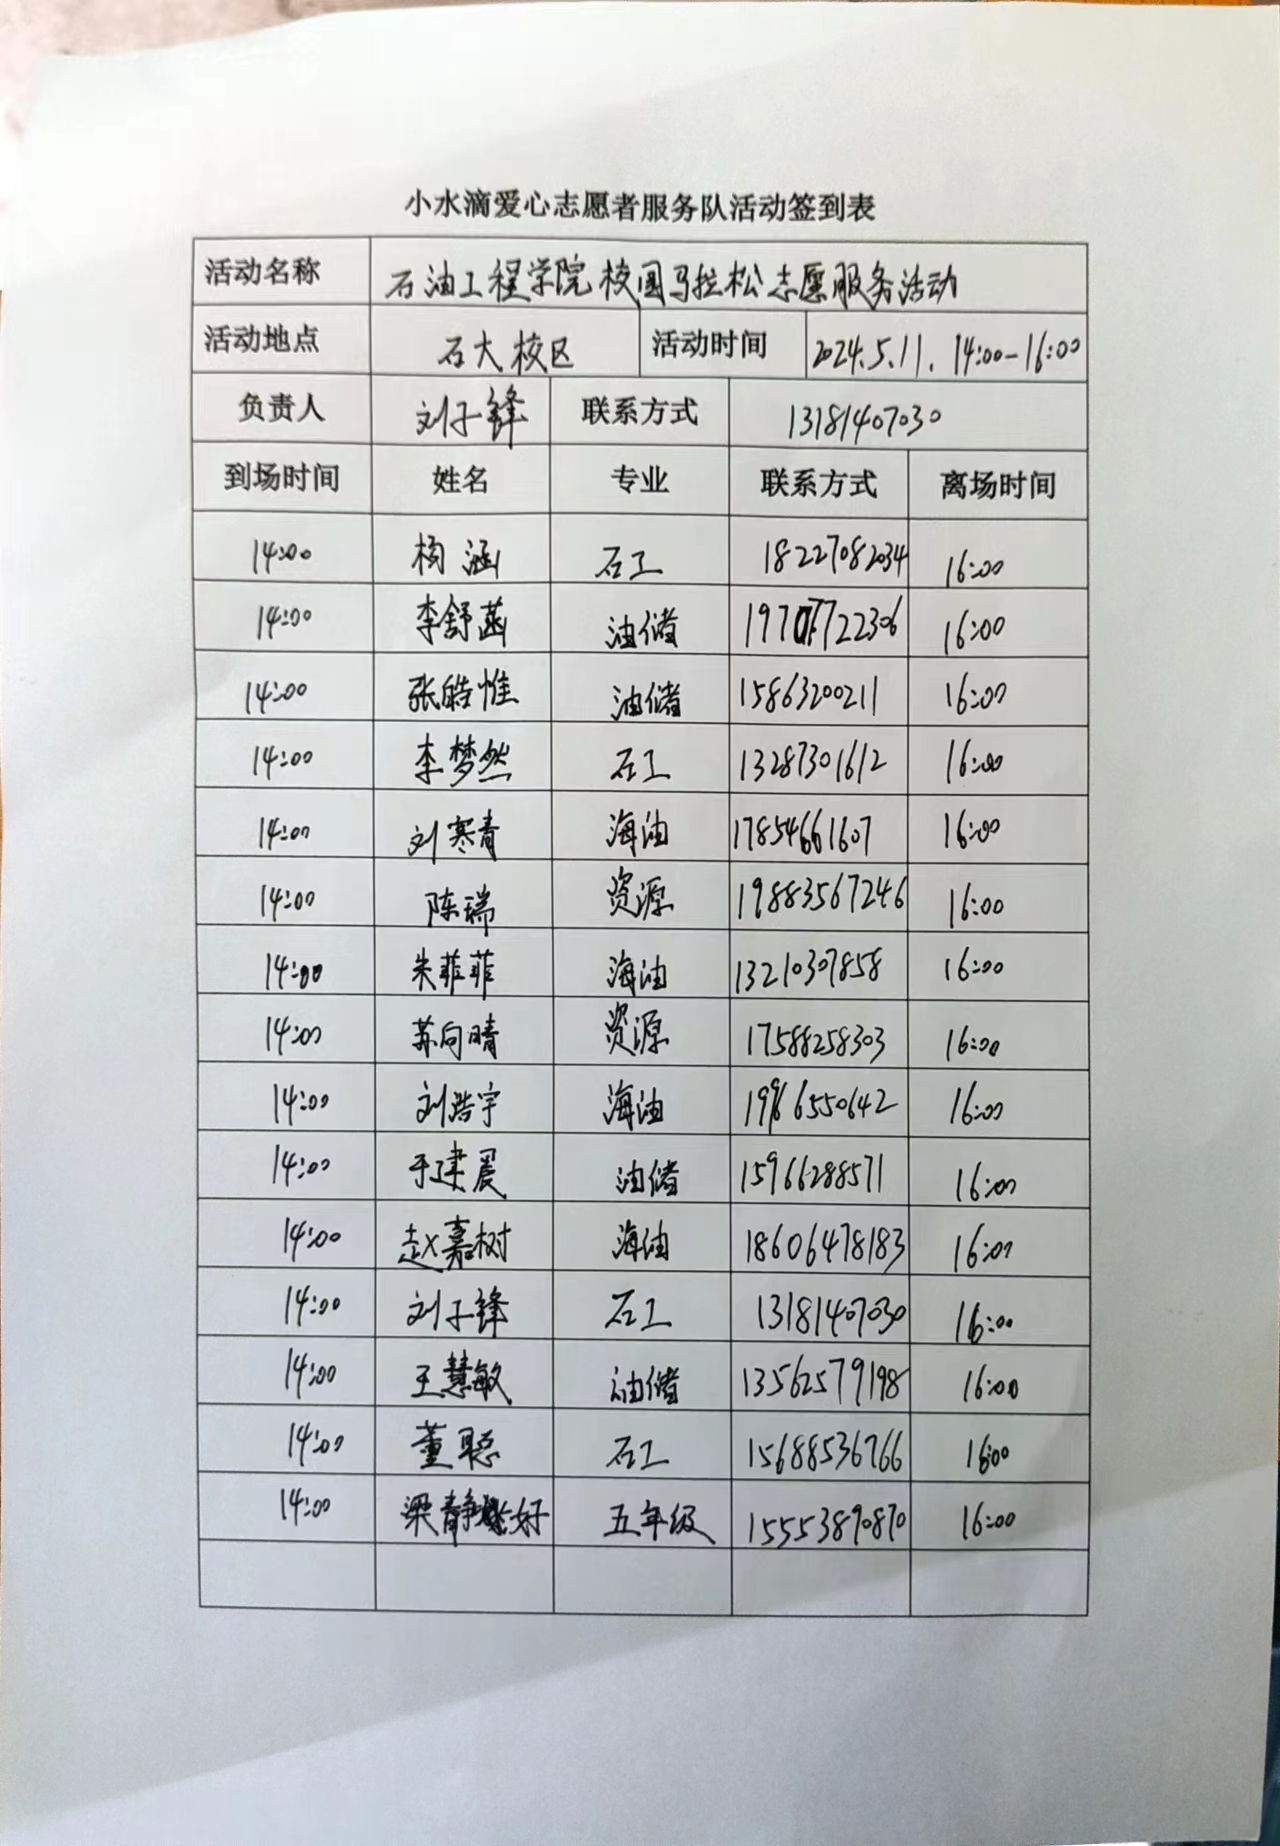 小水滴爱心志愿者服务队活动签到表
活动名称 石油工程学院校园马拉松志愿服务活动
活动地点 石大校区 活动时间 2024.5.11. 14:00-16:00
负责人 刘子锋 联系方式 13181407030
到场时间 姓名 专业 联系方式 离场时间
14:00 杨涵 石工 18227082034 16:00
14:00 李舒菡 油储 16:00
14:00 张皓惟 油储 15863200211 16:00
14:00 李梦然 石工 13287301612 16:00
14:00 刘寒青 海油 17854661607 16:00
14:00 陈瑞 资源 19883567246 16:00
14:00 朱菲菲 海油 13210307858 16:00
14:00 苏向晴 资源 17588258303 16:00
14:00 刘浩宇 海油 16:00
14:00 于建晨 油储 15966288571 16:00
14:00 赵嘉树 海油 18606478183 16:00
14:00 刘子锋 石工 13181407030 16:00
14:00 王慧敏 油储 13562579198 16:00
14:00 董聪 石工 15688536766 16:00
14:00 梁静好 五年级 15553890870 16:00